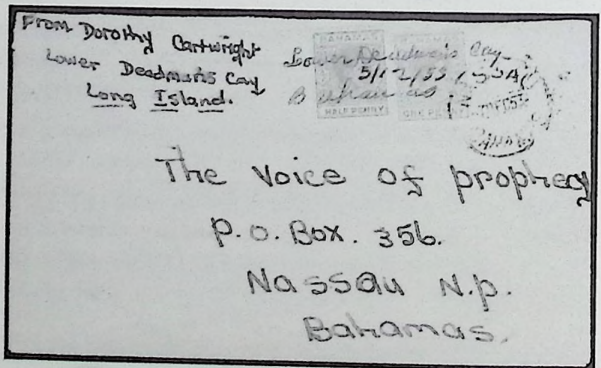 From Dorothy Cartwright
Lower Deadman's Cay
Long Island.
Lower Deadman's Cay
5/12/55
Bahamas
BAHAMAS
HALF PENNY
ONE PENNY
The Voice of prophecy
P.O. Box. 356.
Nassau N.p.
Bahamas.